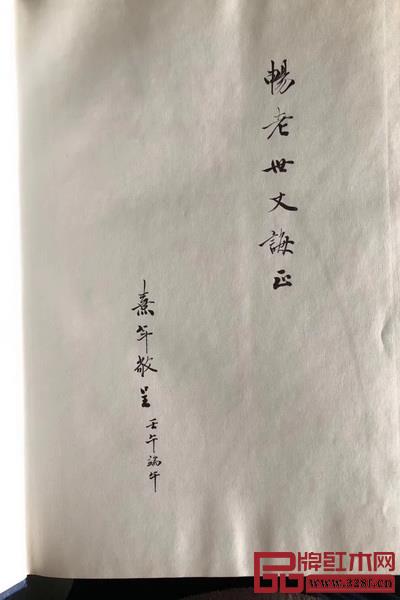 暢老世丈誨正
熹年敬呈 壬午端午
品牌红木网
www.328f.cn